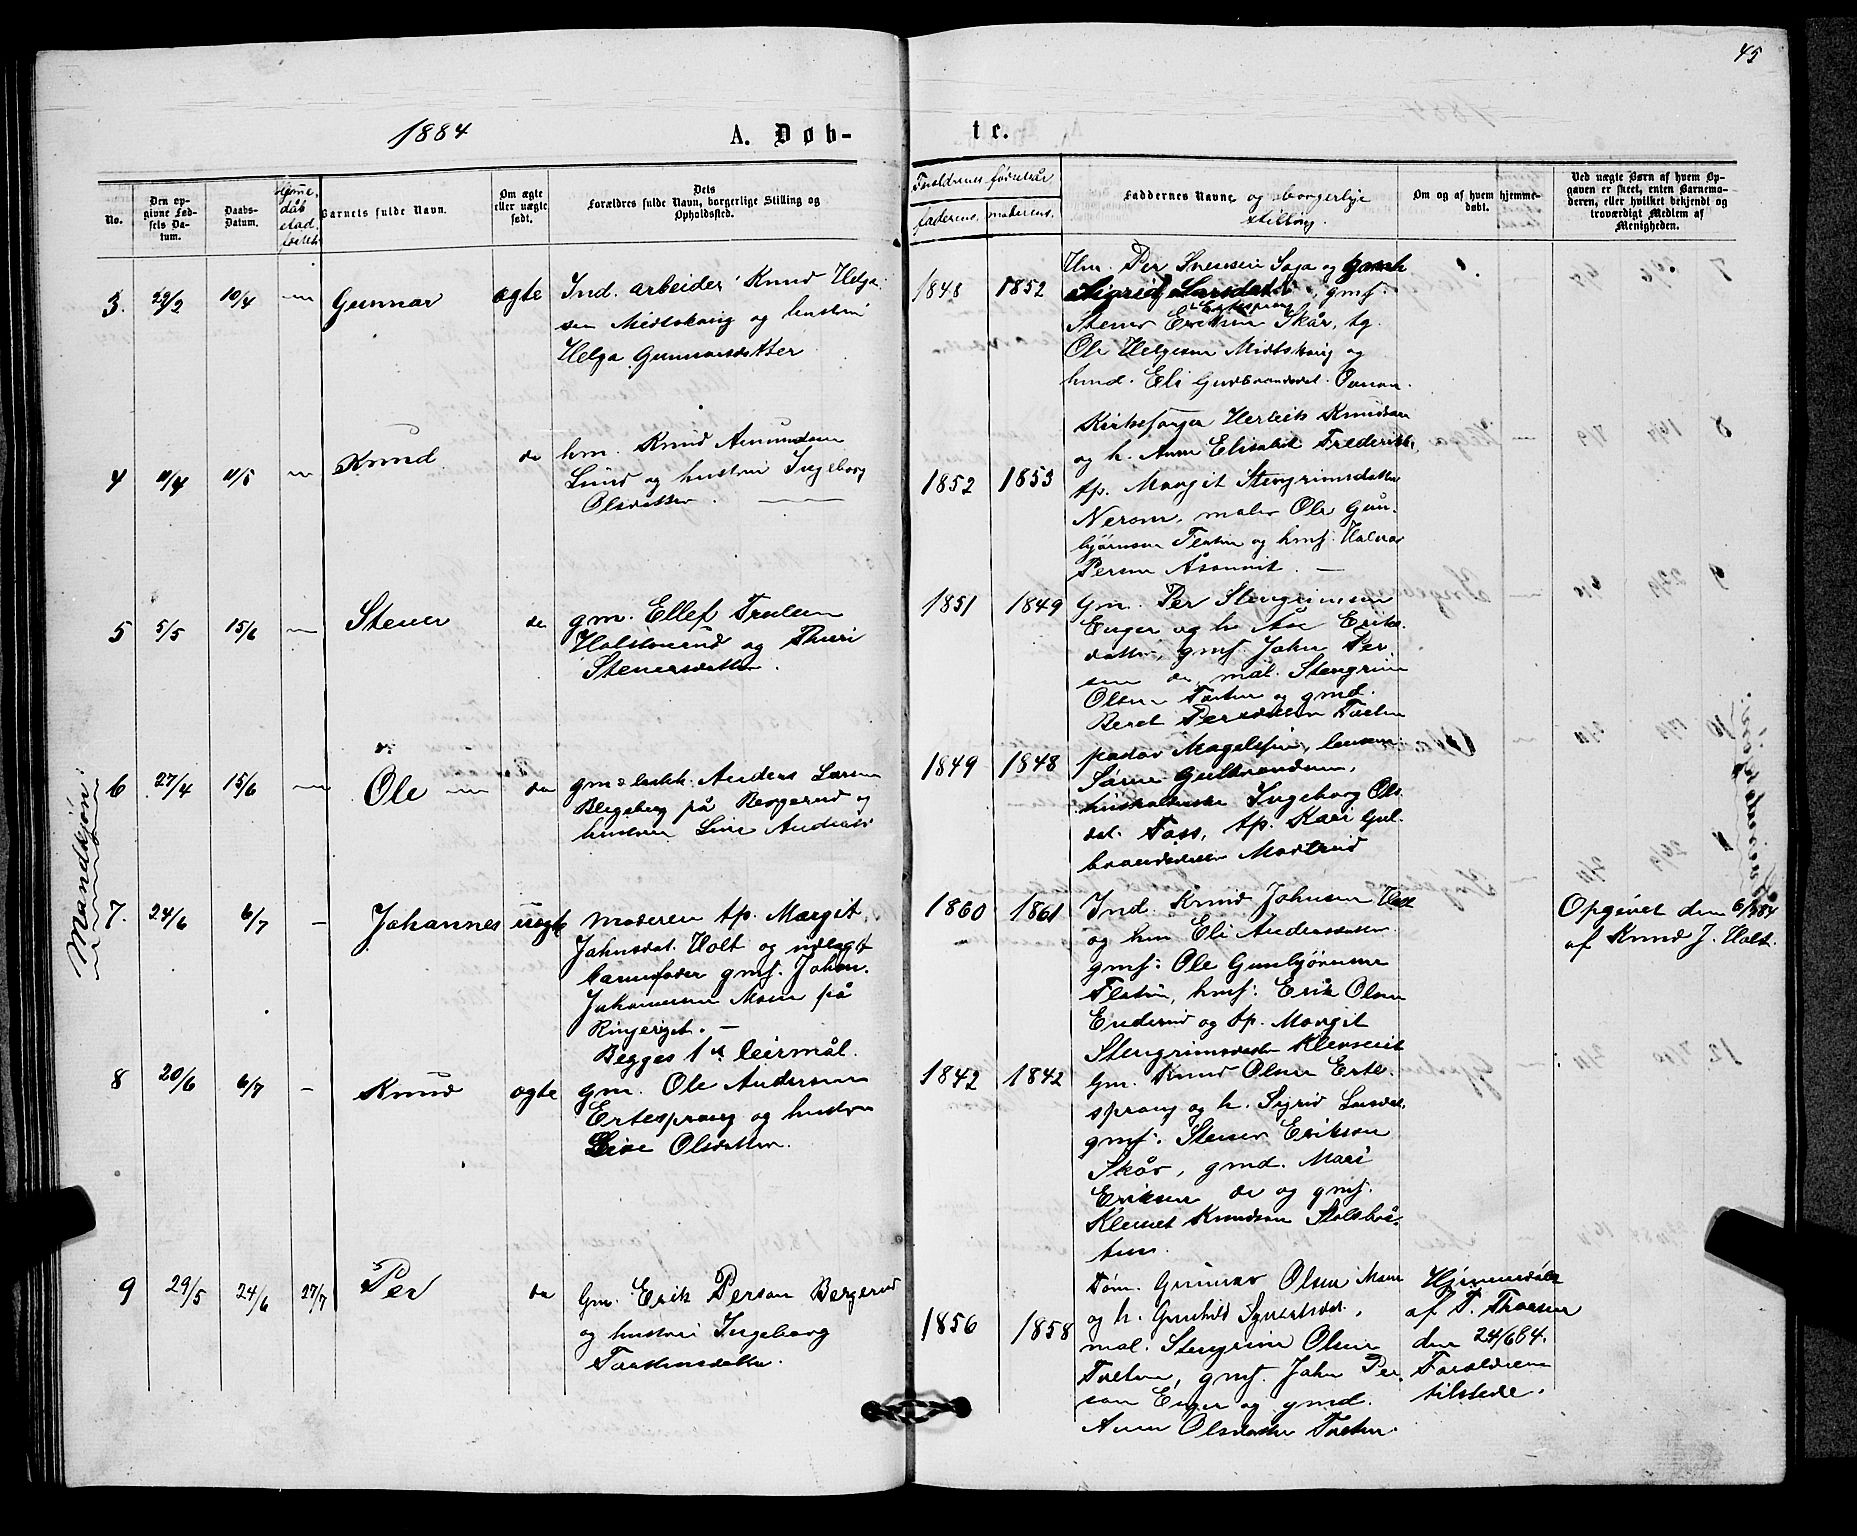 45
1884
A. Døb-
te.
No.
Den op-
givne Fød-
sels Da-
tum.
Daabs-
Datum.
Hjemme-
dåb
stad-
festet
Barnets fulde Navn.
Om ægte
eller uægte
født.
Dets
Forældres fulde Navn, borgerlige Stilling og
Opholdssted.
Forældrenes fødselsår
faderens. moderens.
Faddernes Navne og borgerlige
stilling.
Om og af hvem hjemme-
døbt.
Ved uægte Børn af hvem Op-
gaven er skeet, enten Barnemo-
deren, eller hvilket bekjendt og
troværdigt Medlem af
Menigheden.
Mandkjøn.
3. 29/2 10/4 — Gunnar ægte
Ind. arbeider Knud Helge-
sen Midtskoug og hustru
Helga Gunnarsdatter
1848 1852
Per Svensen Saga og
Sigrid Larsdatt. Ertesprang, gmf.
Stener Eriksen Skår, tg.
Ole Helgesen Midtskoug og
hmd. Eli Gudbrandsdat.
4 11/4 11/5 — Knud do
hm. Knud Amundsen
Lund og hustru Ingeborg
Olsdatter. —
1852 1853
Kirkesanger Herleik Knudsen
og h. Anne Elisabet Frederikke,
tp. Margit Stengrimsdatter
Nerom, maler Ole Gun-
bjørnsen Flaten og hmf. Halvor
Persen Åsomoit. —
5 5/5 15/6 — Stener do
gm. Ellef Trulsen
Holstenrud og Thuri
Stenersdatter.
1851 1849
gm. Per Stengrimsen
Enger og h. Åse Eriks-
datter, gmf. John Per-
sen do, mal. Stengrim
Olsen Toeten og gmd.
Beret Persdatter Toeten
6 27/4 15/6 — Ole — do
gm & lærk. Anders Larsen
Blegeberg på Roggerud og
hustru Live Andersd.
1849 1848
pastor Magelssen, lensm.
Søren Gulbrandsen,
husholderske Ingeborg Ols-
dat. Foss, tp. Kari Gul-
brandsdatter Mortrud
7. 24/6 6/7 - Johannes uægte
Moderen tp. Margit
Johnsdat. Holt og udlagt
barnefader gmf. Johan
Johannesen Moen på
Ringeriget. —
Begges 1ste leirmål.
1860 1861
Ind. Knud Johnsen Holt
og hm Eli Andersdatter
gmf: Ole Gunbjørnsen
Flaten, hmf: Erik Olsen
Enderud og tp. Margit
Stengrimsdatter Klevseit
Opgivet den 6/7 84
af Knud J. Holt.
8 20/6 6/7 - Knud ægte
gm. Ole Andersen
Ertesprang og hustru
Live Olsdatter.
1842 1842
Gm. Knud Olsen Erte-
sprang og h. Sigrid Larsdat,
gmf. Stener Eriksen
Skår, gmd. Mari
Eriksen do og gmf.
Klemet Knudsen Stolsbrå-
ten.
9 29/5 24/6 27/7 Per do
Gm. Erik Persen Bergerud
og hustru Ingeborg
Torstensdatter.
1856 1858
Tøm. Gunnar Olsen Moen
og h. Gunhild Syvertsdat.,
mal. Stengrim Olsen
Toeten, gmf. John Per-
sen Enger og gmd.
Anne Olsdatter Toeten.
Hjemmedøbt
af T. Thoresen
den 24/6 84.
Forældrene
tilstede.